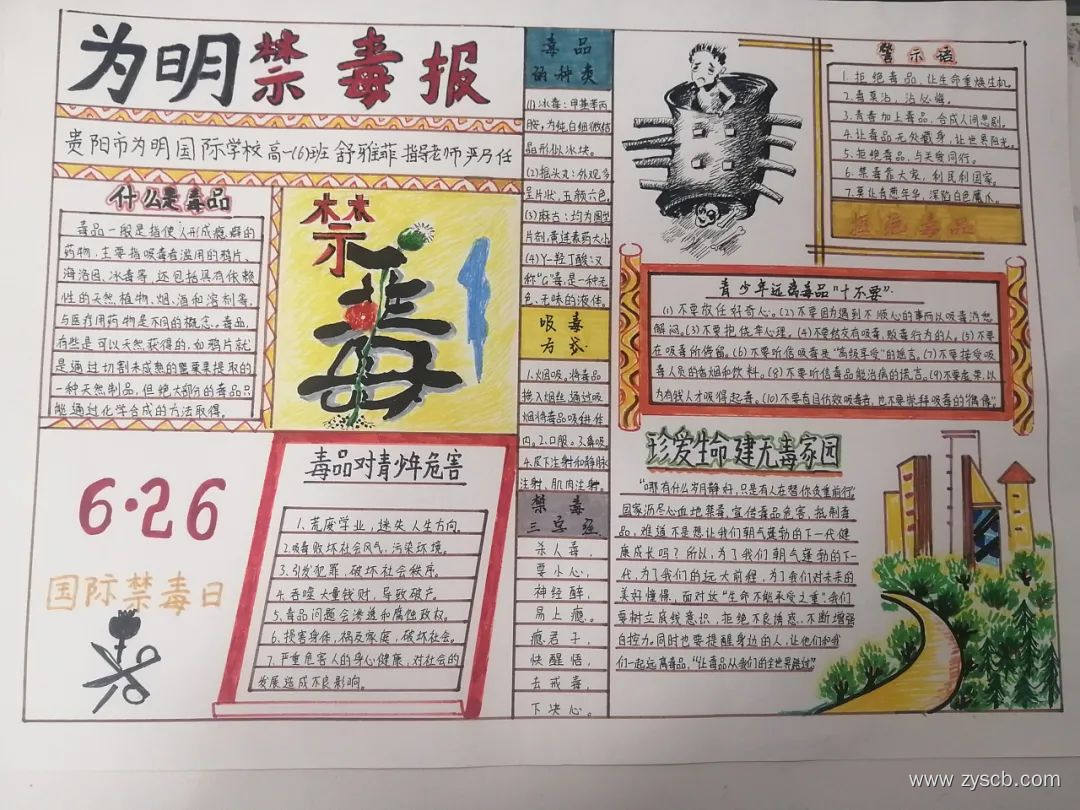 为明禁毒报
贵阳市为明国际学校高一(6)班 舒雅菲 指导老师严乃任
什么是毒品
毒品一般是指使人形成瘾癖的
药物,主要指吸毒者滥用的鸦片、
海洛因、冰毒等,还包括具有依赖
性的天然植物、烟、酒和溶剂等,
与医疗用药物是不同的概念。毒品
有些是可以天然获得的,如鸦片就
是通过切割未成熟的罂粟果提取的
一种天然制品,但绝大部份的毒品只
能通过化学合成的方法取得。
禁
毒
6·26
国际禁毒日
毒品对青少年危害
1.荒废学业,迷失人生方向。
2.吸毒败坏社会风气,污染环境。
3.引发犯罪,破坏社会秩序。
4.吞噬大量钱财,导致破产。
5.毒品问题会渗透和腐蚀政权。
6.损害身体,祸及家庭,破坏社会。
7.严重危害人的身心健康,对社会的
发展造成不良影响。
毒品
的种类
(1)冰毒:甲基苯丙
胺,为纯白细微结
晶形似冰块。
(2)摇头丸:外观多
呈片状,五颜六色,
(3)麻古:均为圆型
片剂,黄连素药大小
(4)Y-羟丁酸:又
称"G"毒,是一种无
色、无味的液体。
吸毒
方式
1.烟吸,将毒品
掺入烟丝,通过吸
烟将毒品吸进体
内。2.口服。3.鼻吸
4.皮下注射和静脉
注射、肌肉注射。
禁毒
三字经
杀人毒,
要小心,
神经醉,
易上瘾。
瘾君子,
快醒悟,
去戒毒,
下决心。
警示语
1.拒绝毒品,让生命重焕生机。
2.毒莫沾,沾必悔。
3.青春加上毒品,合成人间悲剧。
4.让毒品无处藏身,让世界阳光。
5.拒绝毒品,与关爱同行。
6.禁毒靠大家,利民利国家。
7.莫让青葱年华,深陷白色魔爪。
拒绝毒品
青少年远离毒品"十不要"
(1)不要放任好奇心。(2)不要因为遇到不顺心的事而以吸毒消愁
解闷。(3)不要抱侥幸心理。(4)不要结交有吸毒、贩毒行为的人。(5)不要
在吸毒所停留。(6)不要听信吸毒是"高级享受"的谣言。(7)不要接受吸
毒人员的香烟和饮料。(8)不要听信毒品能治病的谎言。(9)不要虚荣,以
为有钱人才吸得起毒。(10)不要盲目仿效吸毒者,也不要崇拜吸毒的"偶像"
珍爱生命 建无毒家园
"哪有什么岁月静好,只是有人在替你负重前行"
国家沥尽心血地禁毒,宣传毒品危害,抵制毒
品,难道不是想让我们朝气蓬勃的下一代健
康成长吗?所以,为了我们朝气蓬勃的下一
代,为了我们的远大前程,为了我们对未来的
美好憧憬,面对这"生命不能承受之重",我们
要树立底线意识,拒绝不良诱惑,不断增强
自控力。同时也要提醒身边的人,让他们和我
们一起远离毒品,"让毒品从我们的全世界路过"
www.zyscb.com